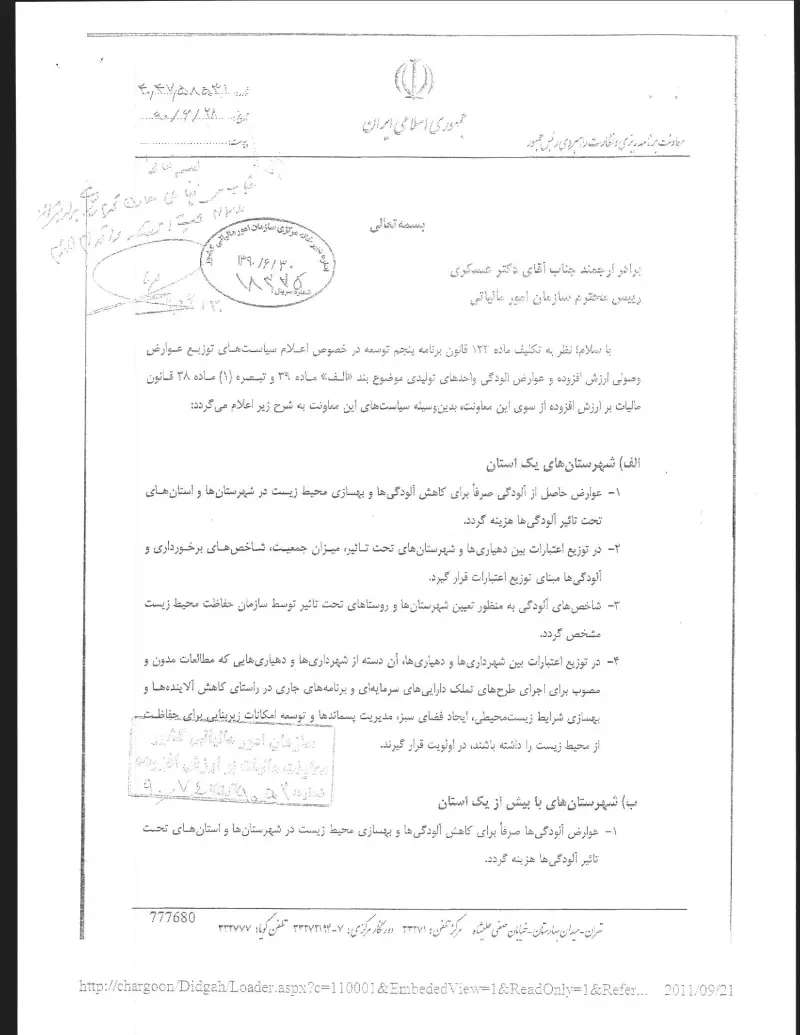 شماره
تاریخ ۹۰/۶/۲۸
پیوست
جمهوری اسلامی ایران
معاونت برنامه ریزی و نظارت راهبردی رئیس جمهور
بسمه تعالی
اداره دبیرخانه مرکزی سازمان امور مالیاتی کشور
۱۳۹۰/۶/۳۰
شماره سریال:
برادر ارجمند جناب آقای دکتر عسکری
رییس محترم سازمان امور مالیاتی
با سلام؛ نظر به تکلیف ماده ۱۲۲ قانون برنامه پنجم توسعه در خصوص اعلام سیاست‌های توزیع عوارض
وصولی ارزش افزوده و عوارض آلودگی واحدهای تولیدی موضوع بند «الف» ماده ۳۹ و تبصره (۱) ماده ۳۸ قانون
مالیات بر ارزش افزوده از سوی این معاونت، بدین‌وسیله سیاست‌های این معاونت به شرح زیر اعلام می‌گردد:
الف) شهرستان‌های یک استان
۱- عوارض حاصل از آلودگی صرفاً برای کاهش آلودگی‌ها و بهسازی محیط زیست در شهرستان‌ها و استان‌های
تحت تاثیر آلودگی‌ها هزینه گردد.
۲- در توزیع اعتبارات بین دهیاری‌ها و شهرستان‌های تحت تاثیر، میزان جمعیت، شاخص‌های برخورداری و
آلودگی‌ها مبنای توزیع اعتبارات قرار گیرد.
۳- شاخص‌های آلودگی به منظور تعیین شهرستان‌ها و روستاهای تحت تاثیر توسط سازمان حفاظت محیط زیست
مشخص گردد.
۴- در توزیع اعتبارات بین شهرداری‌ها و دهیاری‌ها، آن دسته از شهرداری‌ها و دهیاری‌هایی که مطالعات مدون و
مصوب برای اجرای طرح‌های تملک دارایی‌های سرمایه‌ای و برنامه‌های جاری در راستای کاهش آلاینده‌ها و
بهسازی شرایط زیست‌محیطی، ایجاد فضای سبز، مدیریت پسماندها و توسعه امکانات زیربنایی برای حفاظت
از محیط زیست را داشته باشند، در اولویت قرار گیرند.
ب) شهرستان‌های با بیش از یک استان
۱- عوارض آلودگی‌ها صرفاً برای کاهش آلودگی‌ها و بهسازی محیط زیست در شهرستان‌ها و استان‌های تحت
تاثیر آلودگی‌ها هزینه گردد.
777680
تهران-میدان بهارستان-خیابان صفی علیشاه مرکز تلفن: ۳۳۲۷۱ دورنگار مرکزی: ۷-۳۳۲۷۲۱۹۴ تلفن گویا: ۳۳۲۷۷۷
http://chargoon/Didgah/Loader.aspx?c=110001&EmbededView=1&ReadOnly=1&Refer... 2011/09/21